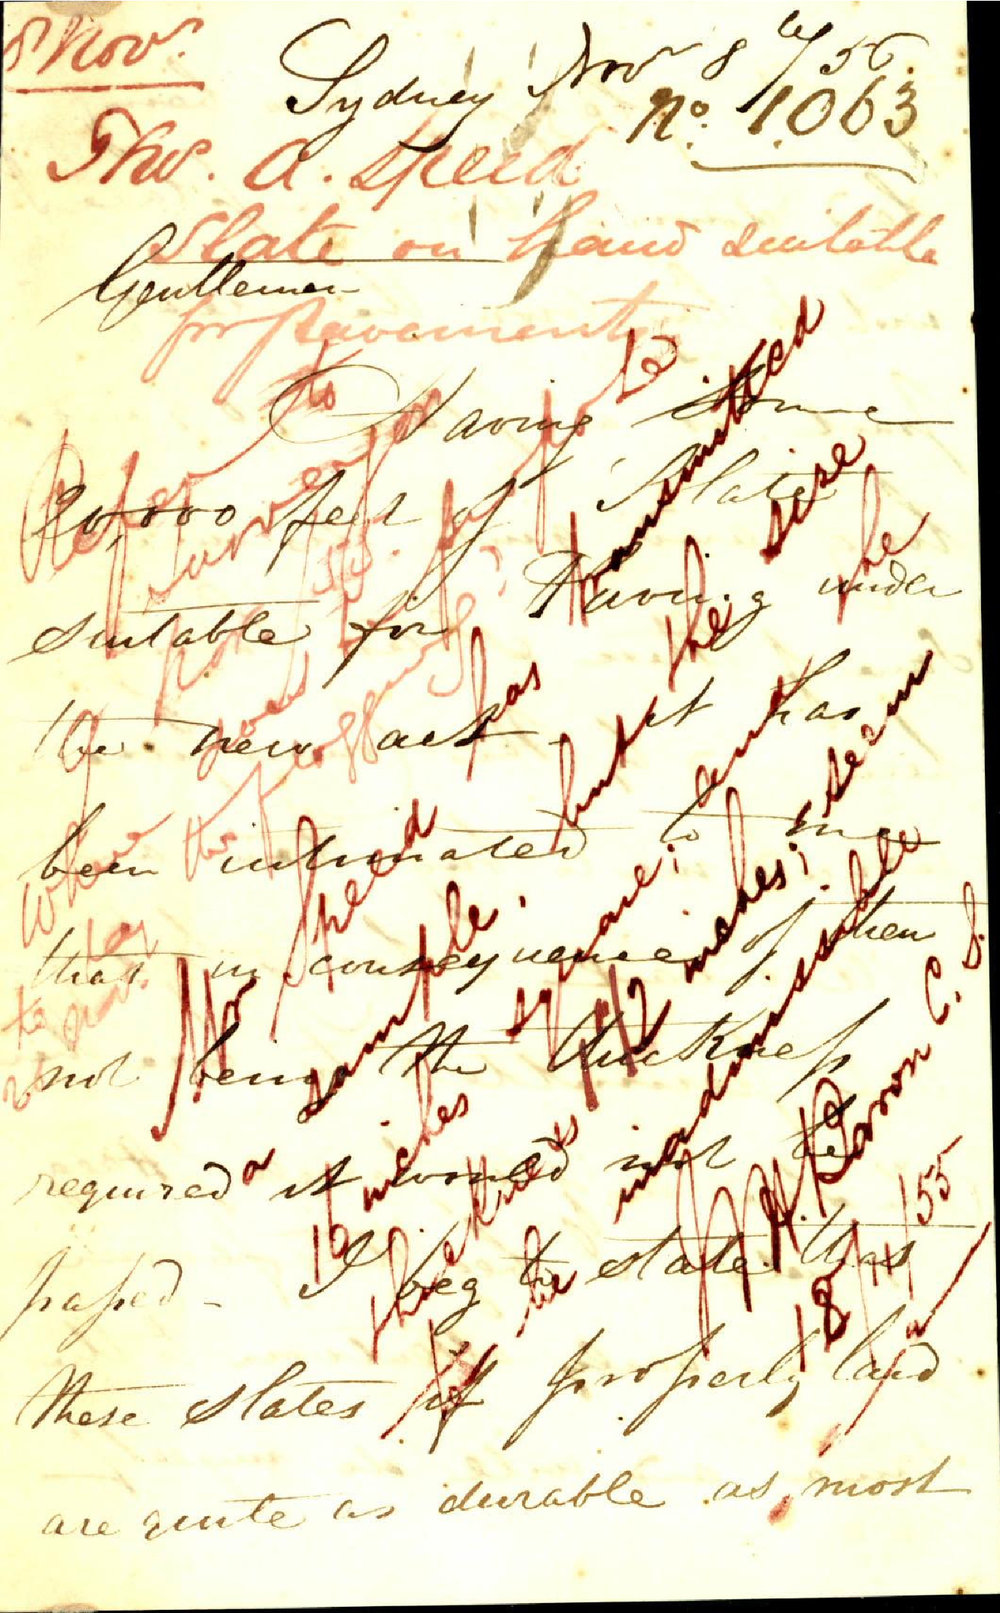 8 Novr.
Sydney Novr 8th/55.
No. 1063
Thos. A. Speed
Slate on hand suitable
for pavement
Gentlemen
Having some
20,000 feet of Slates
suitable for Paving under
the new act - it has
been intimated to me
that in consequence of their
not being the thickness
required it would not be
passed - I beg to state that
these slates if properly laid
are quite as durable as most
Refer to
Surveyor
for
to be
where
the flagging
to
Mr Speed has transmitted
a sample, but the size
16 inches square; and the
thickness 1 1/2 inches; seem
to be inadmissable
18/11/55